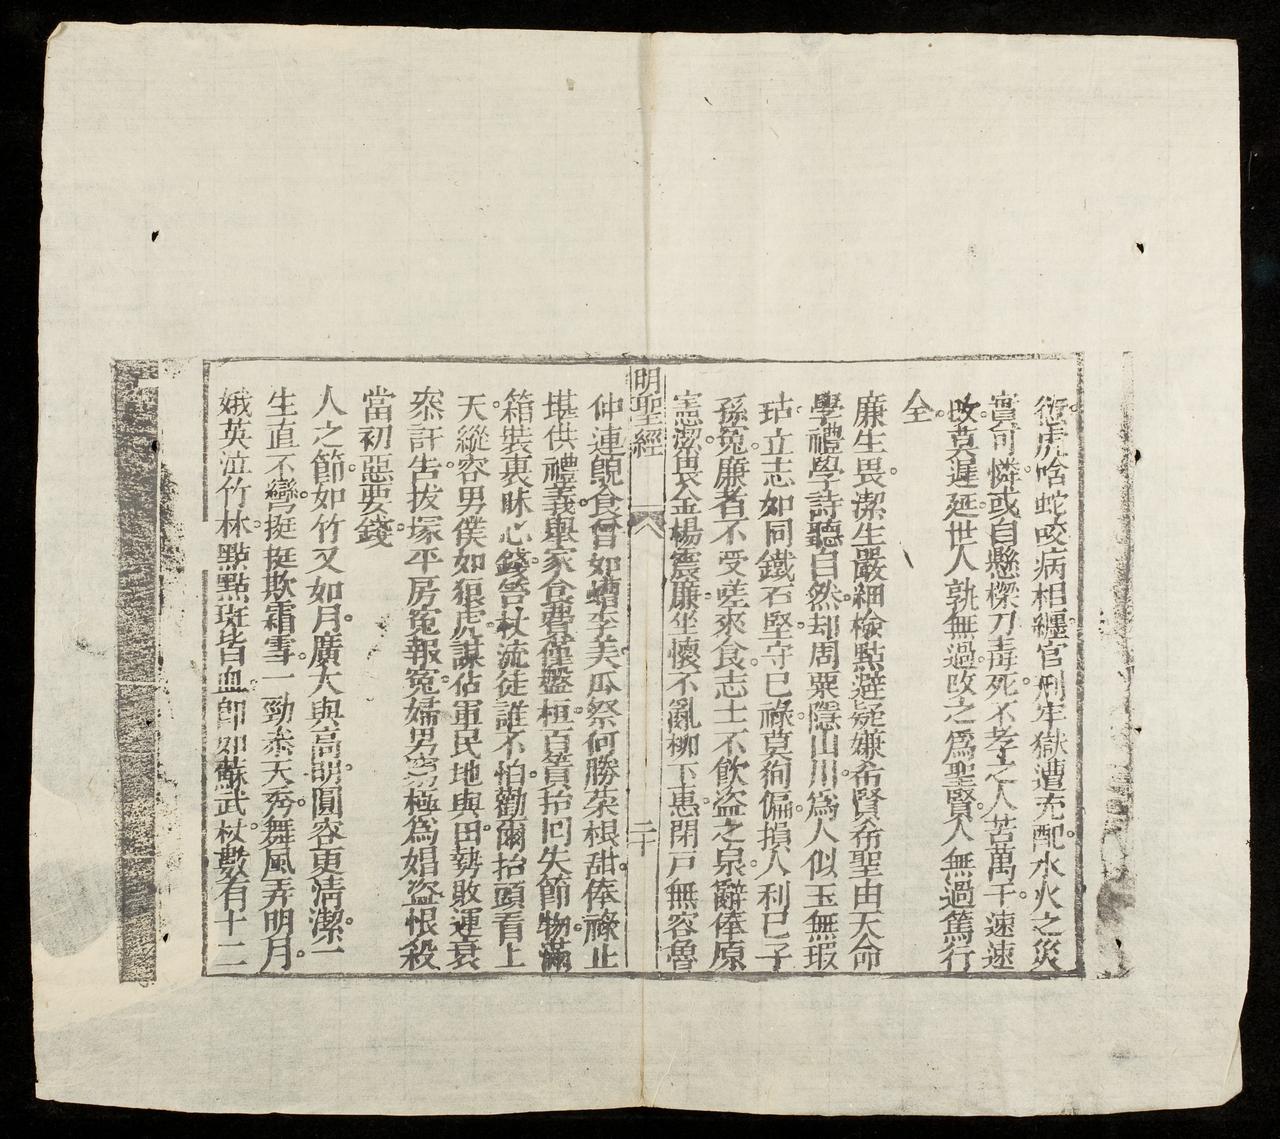 虎啥蛇咬病相纏官刑牢獄遭充配水火之災
實可憐或自懸樑刀毒死不孝之人苦萬千速速
改莫遲延世人孰無過改之為聖賢人無過篤行
全
廉生畏潔生嚴細檢點避疑嫌希賢希聖由天命
學禮學詩聽自然却周粟隱山川為人似玉無瑕
玷立志如同鐵石堅守巳祿莫狥偏損人利巳子
孫冤廉者不受嗟來食志士不飲盜之泉辭俸原
憲潔畏金楊震廉坐懷不亂柳下惠閉戸無容魯
明聖經 二十
仲連䝉食曾如螬李美瓜祭何勝菜根甜俸祿止
堪供禮義舉家合費僅盤桓百贊抬囘失節物滿
箱裝裹昧心錢笞杖流徒誰不怕勸爾抬頭看上
天縱容男僕如狼虎謀佔軍民地與田勢敗運衰
叅訐吿拔塚平房冤報冤婦男窮極為娼盜恨殺
當初惡要錢
人之節如竹又如月廣大與高明圓容更淸潔一
生直不彎挺挺欺霜雪一勁叅天秀舞風弄明月
娥英泣竹林點點斑皆血卽如蘇武杖數有十二